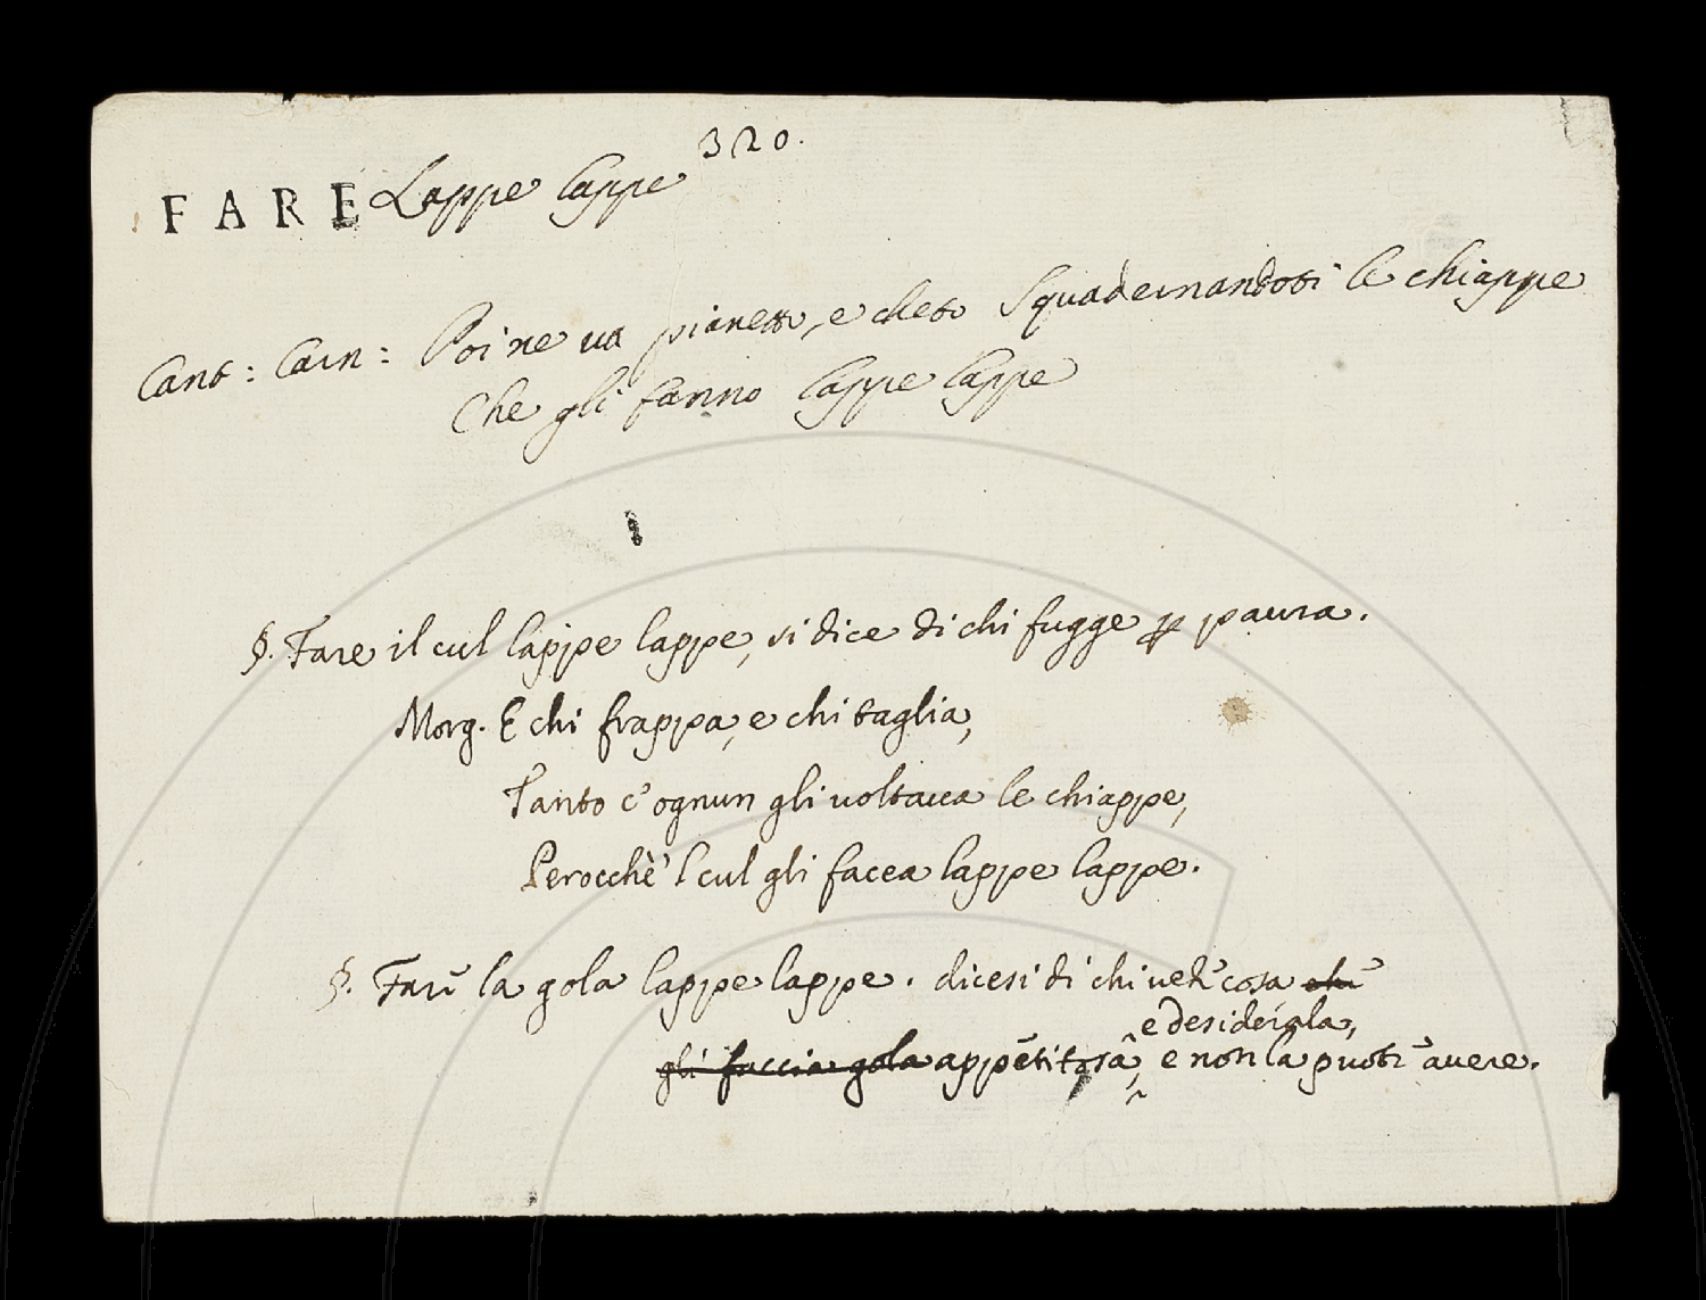 320.
FARE Lappe lappe
Cant: Carn: Poi ne va pianetto, e cheto Squadernandoti le chiappe
Che gli fanno lappe lappe
§. Fare il cul lappe lappe, si dice di chi fugge ꝑ paura.
Morg. E chi frappa, e chi taglia,
Tanto c'ognun gli voltava le chiappe,
Perocchè 'l cul gli facea lappe lappe.
§. Fare la gola lappe lappe. dicesi di chi vede cosa che
e desiderala,
gli faccia gola appetitosa, e non la puote avere.